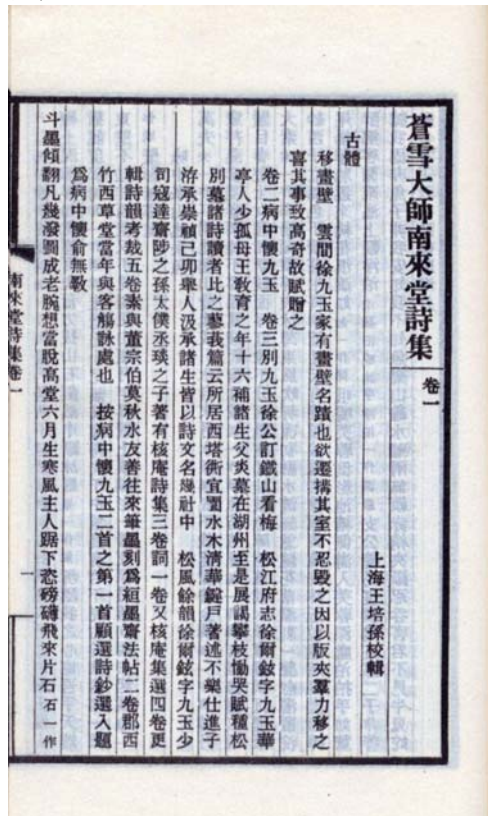 蒼雪大師南來堂詩集 卷一
上海王培孫校輯
古體
移畫壁 雲間徐九玉家有畫壁名蹟也欲遷搆其室不忍毀之因以版夾羣力移之
喜其事致高奇故賦贈之
卷二病中懷九玉 卷三別九玉徐公訂鐵山看梅 松江府志徐爾鉉字九玉華
亭人少孤母王教育之年十六補諸生父炎墓在湖州至是展謁攀枝慟哭賦種松
別墓諸詩讀者比之蓼我篇云所居西塔衖宜園水木清華鍵戶著述不樂仕進子
洊承崇禎己卯舉人汲承諸生皆以詩文名幾社中 松風餘韻徐爾鉉字九玉少
司寇達齋陟之孫太僕丞琰之子著有核庵詩集三卷詞一卷又核庵集選四卷更
輯詩韻考裁五卷素與董宗伯莫秋水友善往來筆墨刻爲絙墨齋法帖二卷郡西
竹西草堂當年與客觴詠處也 按病中懷九玉二首之第一首顧選詩鈔選入題
爲病中懷俞無斁
斗墨傾翻凡幾潑圖成老腕想當脫高堂六月生寒風主人踞下恣磅礴飛來片石 石一作
南來堂詩集卷一
一